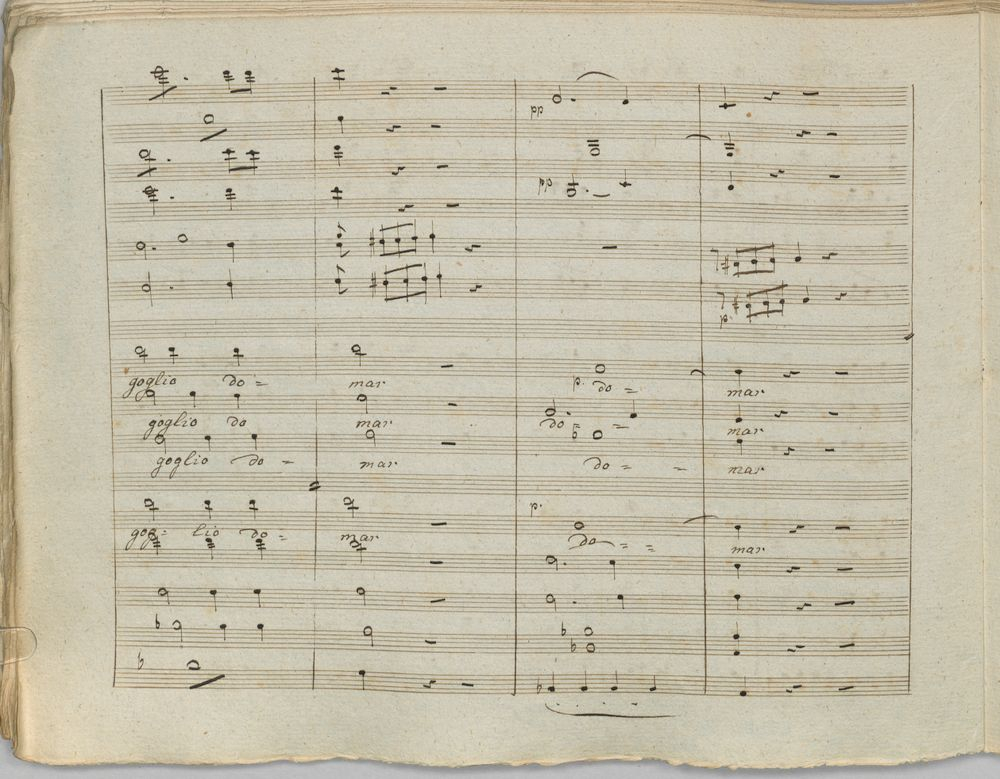 goglio do = mar p. do = mar
goglio do mar do = = mar
goglio do = mar do = = mar
p.
gog = lio do = mar do = = mar